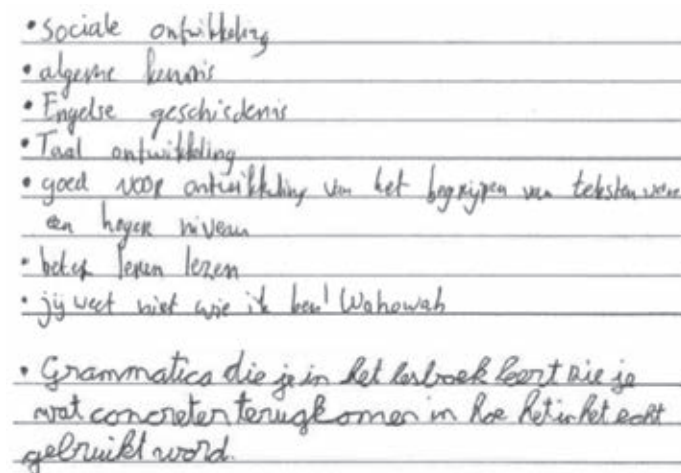 • sociale ontwikkeling
• algeme kennis
• Engelse geschiedenis
• Taal ontwikkeling
• goed voor ontwikkeling van het begrijpen van teksten
een hoger niveau
• beter leren lezen
• jij weet niet wie ik ben! Wahowah
• Grammatica die je in het lesboek leert zie je
wat concreter terugkomen in hoe het in het echt
gebruikt word.